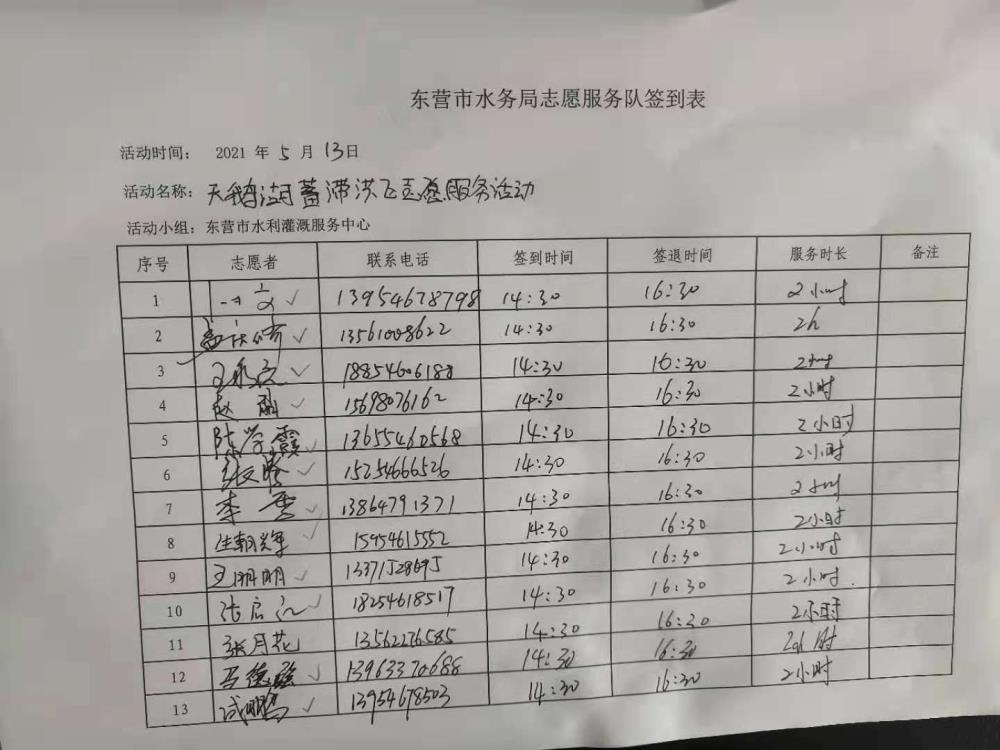 东营市水务局志愿服务队签到表
活动时间： 2021 年 5 月 13日
活动名称：天鹅湖蓄滞洪区志愿服务活动
活动小组：东营市水利灌溉服务中心
序号 志愿者 联系电话 签到时间 签退时间 服务时长 备注
1 13954678798 14:30 16:30 2小时
2 13561008622 14:30 16:30 2h
3 18854606188 14:30 16:30 2小时
4 赵 15698076162 14:30 16:30 2小时
5 陈学霞 13655460568 14:30 16:30 2小时
6 15254666526 14:30 16:30 2小时
7 李 13864791371 14:30 16:30 2小时
8 生朝辉 15954615552 14:30 16:30 2小时
9 王明明 13371528695 14:30 16:30 2小时
10 张启 18254618517 14:30 16:30 2小时.
11 张月花 13562276585 14:30 16:30 2小时
12 马德强 13963370688 14:30 16:30 2小时
13 试鹏 13954678503 14:30 16:30 2小时